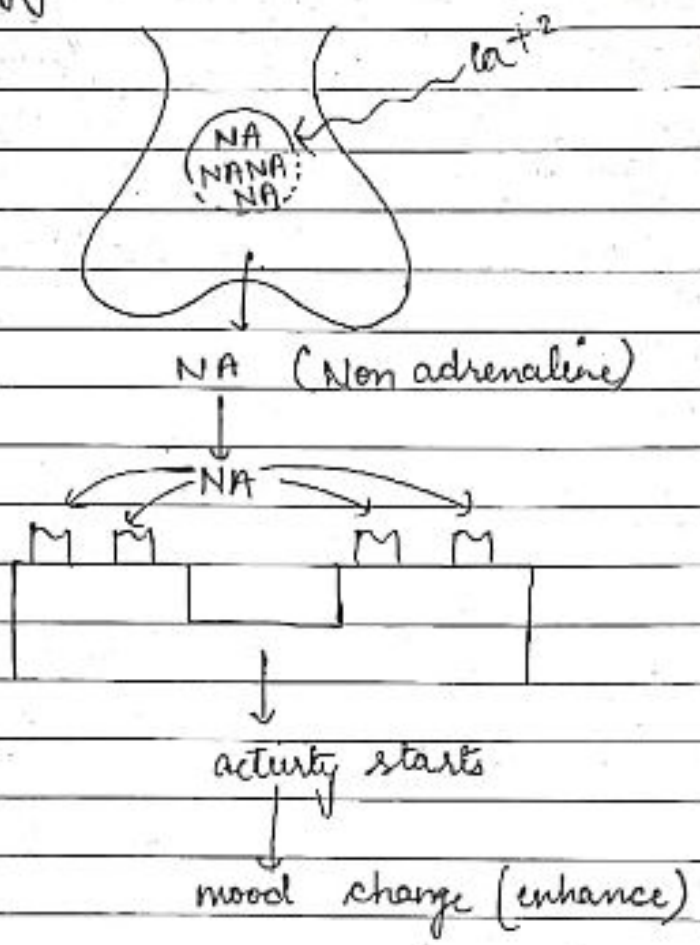 Ca+2
NA
NANA
NA
NA (Non adrenaline)
NA
activity starts
mood change (enhance)